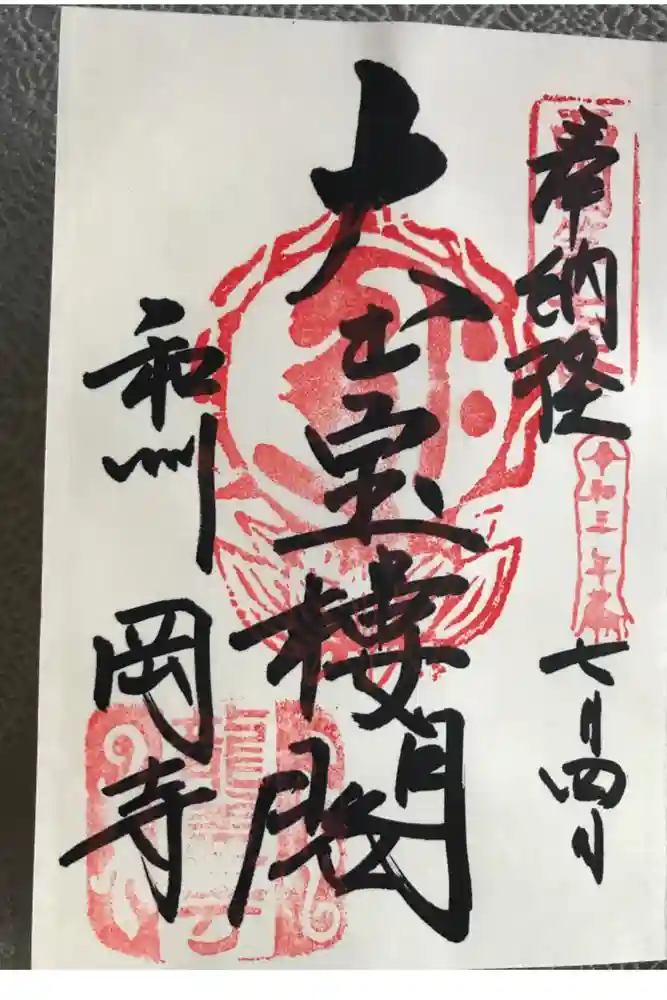 奉納経
令和三年
七月四日
大悲宝楼閣
和州
岡寺